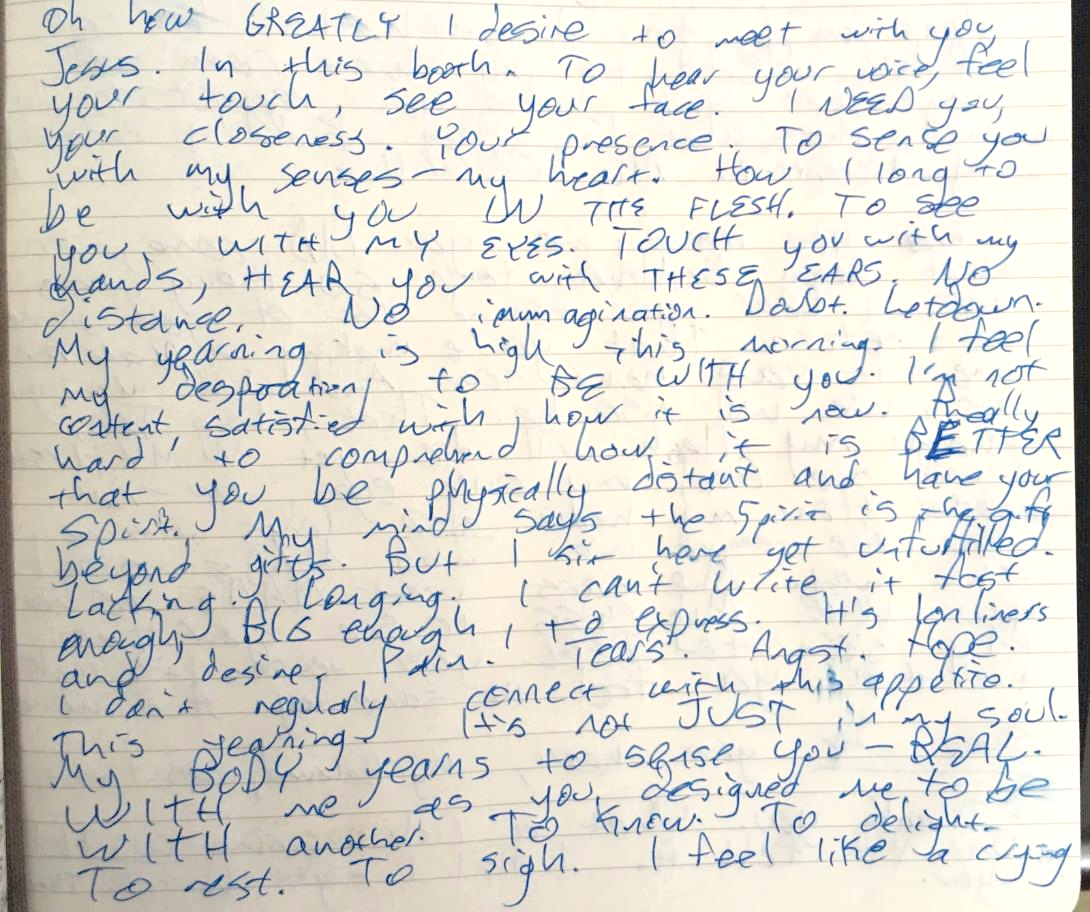 Oh how GREATLY I desire to meet with you,
Jesus. In this booth. To hear your voice, feel
your touch, see your face. I NEED you,
your closeness. Your presence. To sense you
with my senses - my heart. How I long to
be with you IN THE FLESH. TO see
you WITH MY EYES. TOUCH you with my
hands, HEAR you with THESE EARS. NO
distance. No immagination. Doubt. Letdown.
My yearning is high this morning. I feel
my desporation to BE WITH you. I'm not
content, satisfied with how it is now. Really
hard to comprehend how it is BETTER
that you be physically distant and have your
Spirit. My mind says the Spirit is the gift
beyond gifts. But I sit here yet unfulfilled.
Lacking. Longing. I can't write it fast
enough, BIG enough, to express. It's lonliness
and desire. Pain. Tears. Angst. Hope.
I don't regularly connect with this appetite.
This yearning. It's not JUST in my soul.
My BODY yearns to sense you - REAL.
WITH me as you designed me to be
WITH another. To know. To delight.
To rest. To sigh. I feel like a crying